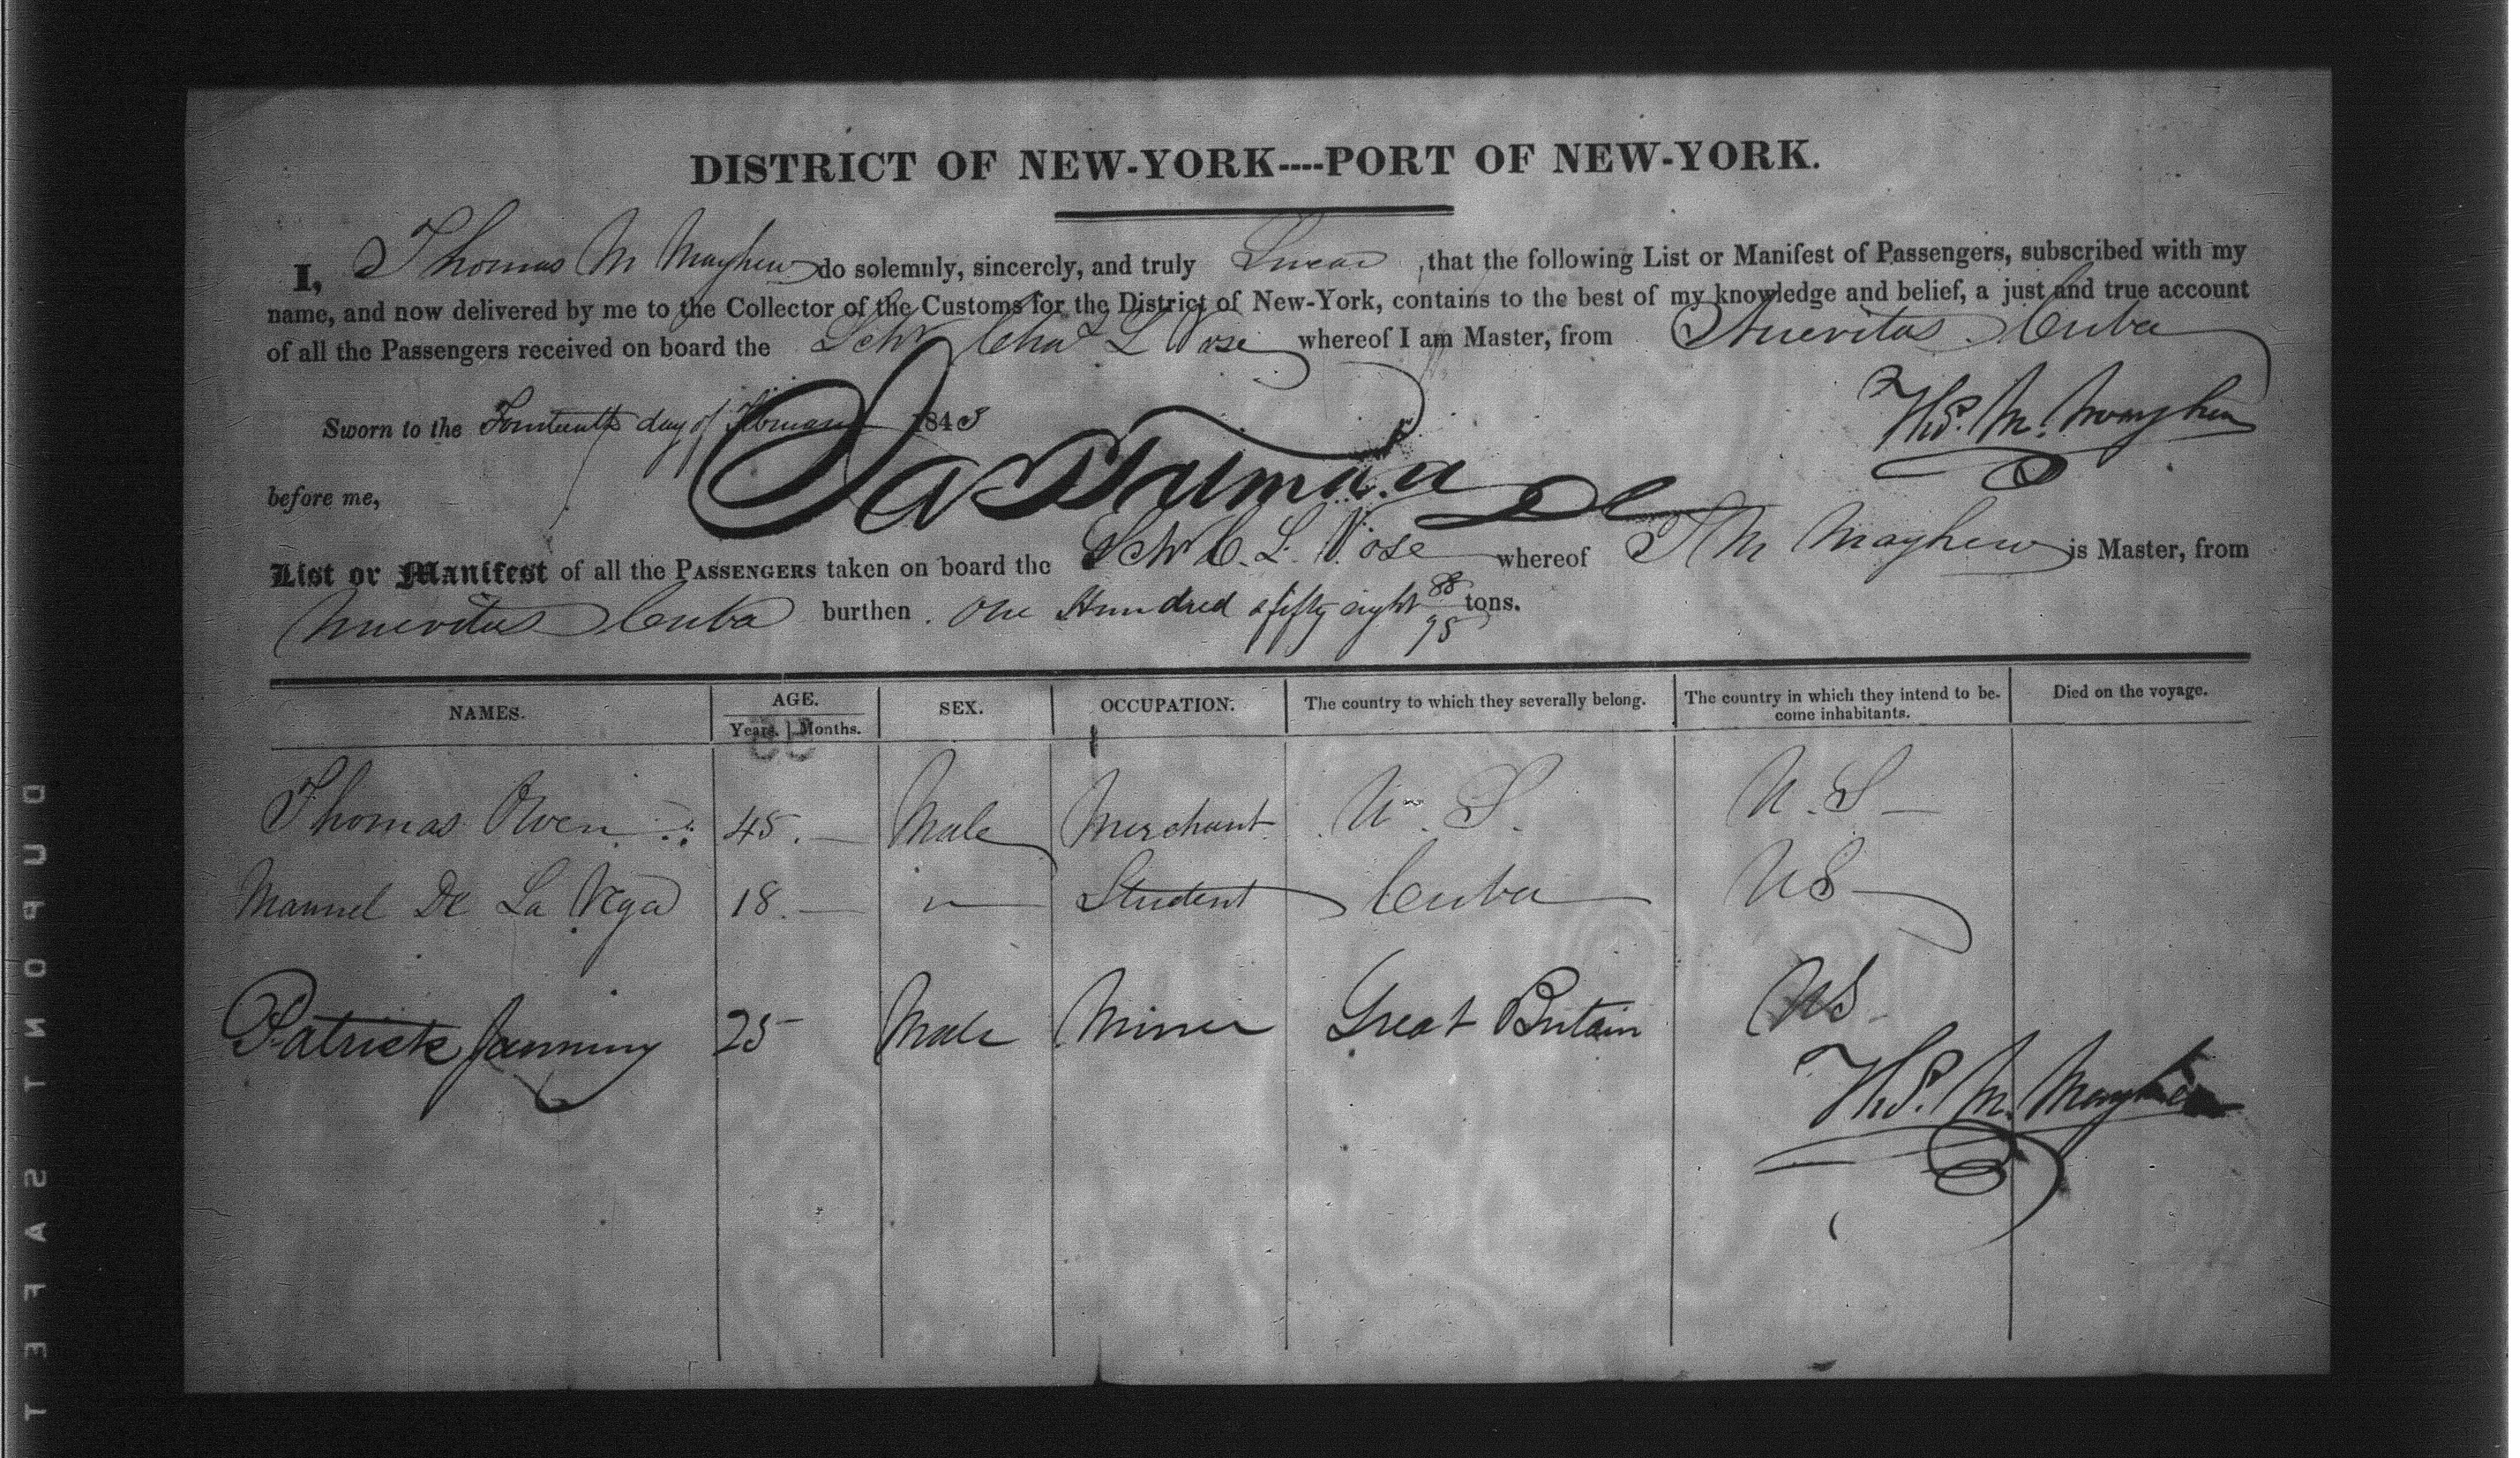 DISTRICT OF NEW-YORK----PORT OF NEW-YORK.
I, Thomas M Mayhew do solemnly, sincerely, and truly Swear, that the following List or Manifest of Passengers, subscribed with my
name, and now delivered by me to the Collector of the Customs for the District of New-York, contains to the best of my knowledge and belief, a just and true account
of all the Passengers received on board the Schr Chas L Vose whereof I am Master, from Nuevitas Cuba
Sworn to the Fourteenth day of 1843
Ths. M. Mayhew
before me,
List or Manifest of all the PASSENGERS taken on board the Schr C. L. Vose whereof T M Mayhew is Master, from
Nuevitas Cuba burthen One Hundred & fifty eight 88/95 tons.
NAMES. AGE. Years. Months. SEX. OCCUPATION. The country to which they severally belong. The country in which they intend to become inhabitants. Died on the voyage.
Thomas Owen 45. — Male Merchant U. S. U. S —
Manuel De La Vega 18. — " Student Cuba US
Patrick 25 Male Miner Great Britain US
Ths. M. Mayhew
DUPONT SAFET